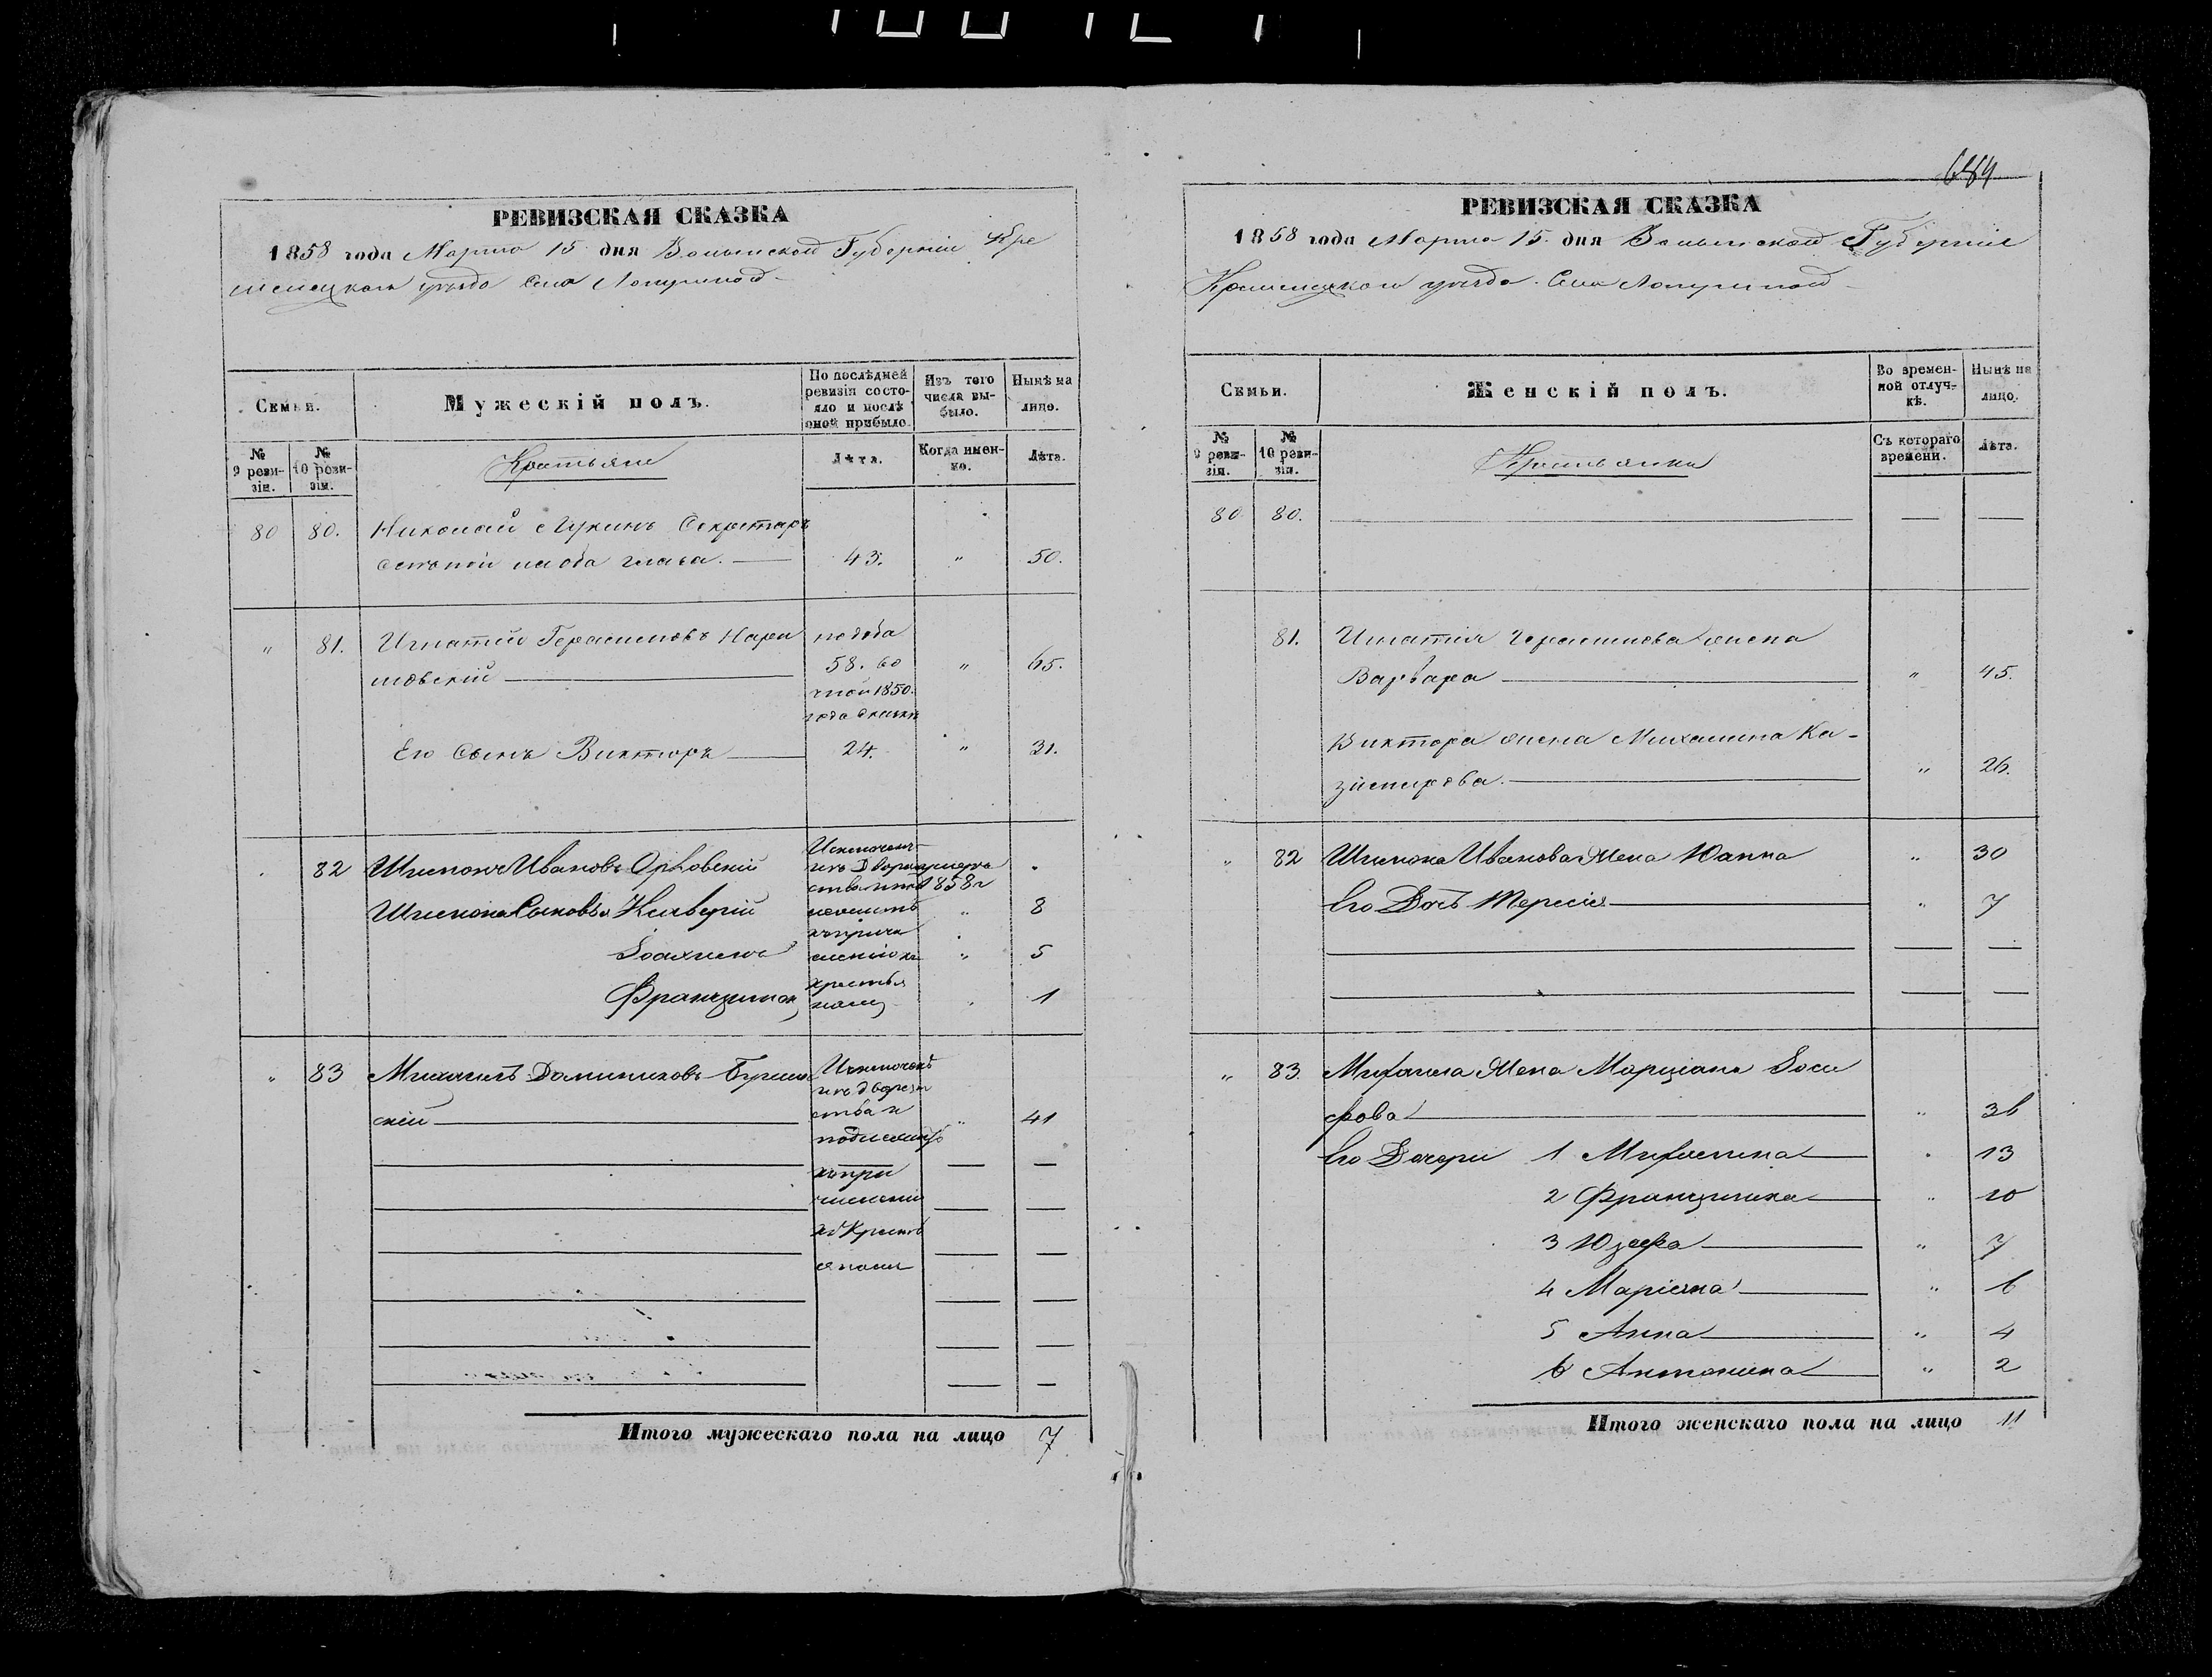 РЕВИЗСКАЯ СКАЗКА
1858 года Марта 15 дня Волынской Губерніи Кре
менецкаго уѣзда Села Лопушной
Семьи.
Мужескій полъ.
По послѣдней ревизіи состояло и послѣ оной прибыло.
Изъ того числа выбыло.
Нынѣ на лицо.
№ 9 ревизіи.
№ 10 ревизіи.
Крестьяне
Лѣта.
Когда именно.
Лѣта.
80 80. Николай Лукинъ Секретаръ
слѣпой на оба глаза. 43. " 50.
" 81. Игнатій Герасимовъ
58. " 65.
1850.
года
Его Сынъ Викторъ 24. " 31.
82 Шимонъ Ивановъ Орловскій
Исключенъ
изъ Дворян
1858
Шимона Сыновья Ксаверій " 8
къ причи
Іоахимъ сленію къ " 5
крестья
Францишек намъ 1
" 83 Михаилъ Доминиковъ
Исключенъ
изъ дворян
ства и
скій " 41
подлежитъ
къ при
численію
къ Кресть
янам
Итого мужескаго пола на лицо 7
684
РЕВИЗСКАЯ СКАЗКА
1858 года Марта 15 дня Волынской Губерніи
Кременецкаго уѣзда Села Лопушной
Семьи.
Женскій полъ.
Во временной отлучкѣ.
Нынѣ на лицо.
№ 9 ревизіи.
№ 10 ревизіи.
Крестьянки
Съ котораго времени.
Лѣта.
80 80.
81. Игнатія Герасимова жена
Варвара " 45.
Виктора жена Михалина Ка-
зимирова. " 26.
" 82 Шимона Иванова Жена Юанна " 30
Его Дочь Тересія " 7
" 83. Михаила Жена Марціана Іоси
фова " 36
Его Дочери 1 Михалина " 13
2 Францишка " 10
3 Юзефа " 7
4 Маріяна " 6
5 Анна " 4
6 Антонина " 2
Итого женскаго пола на лицо 11